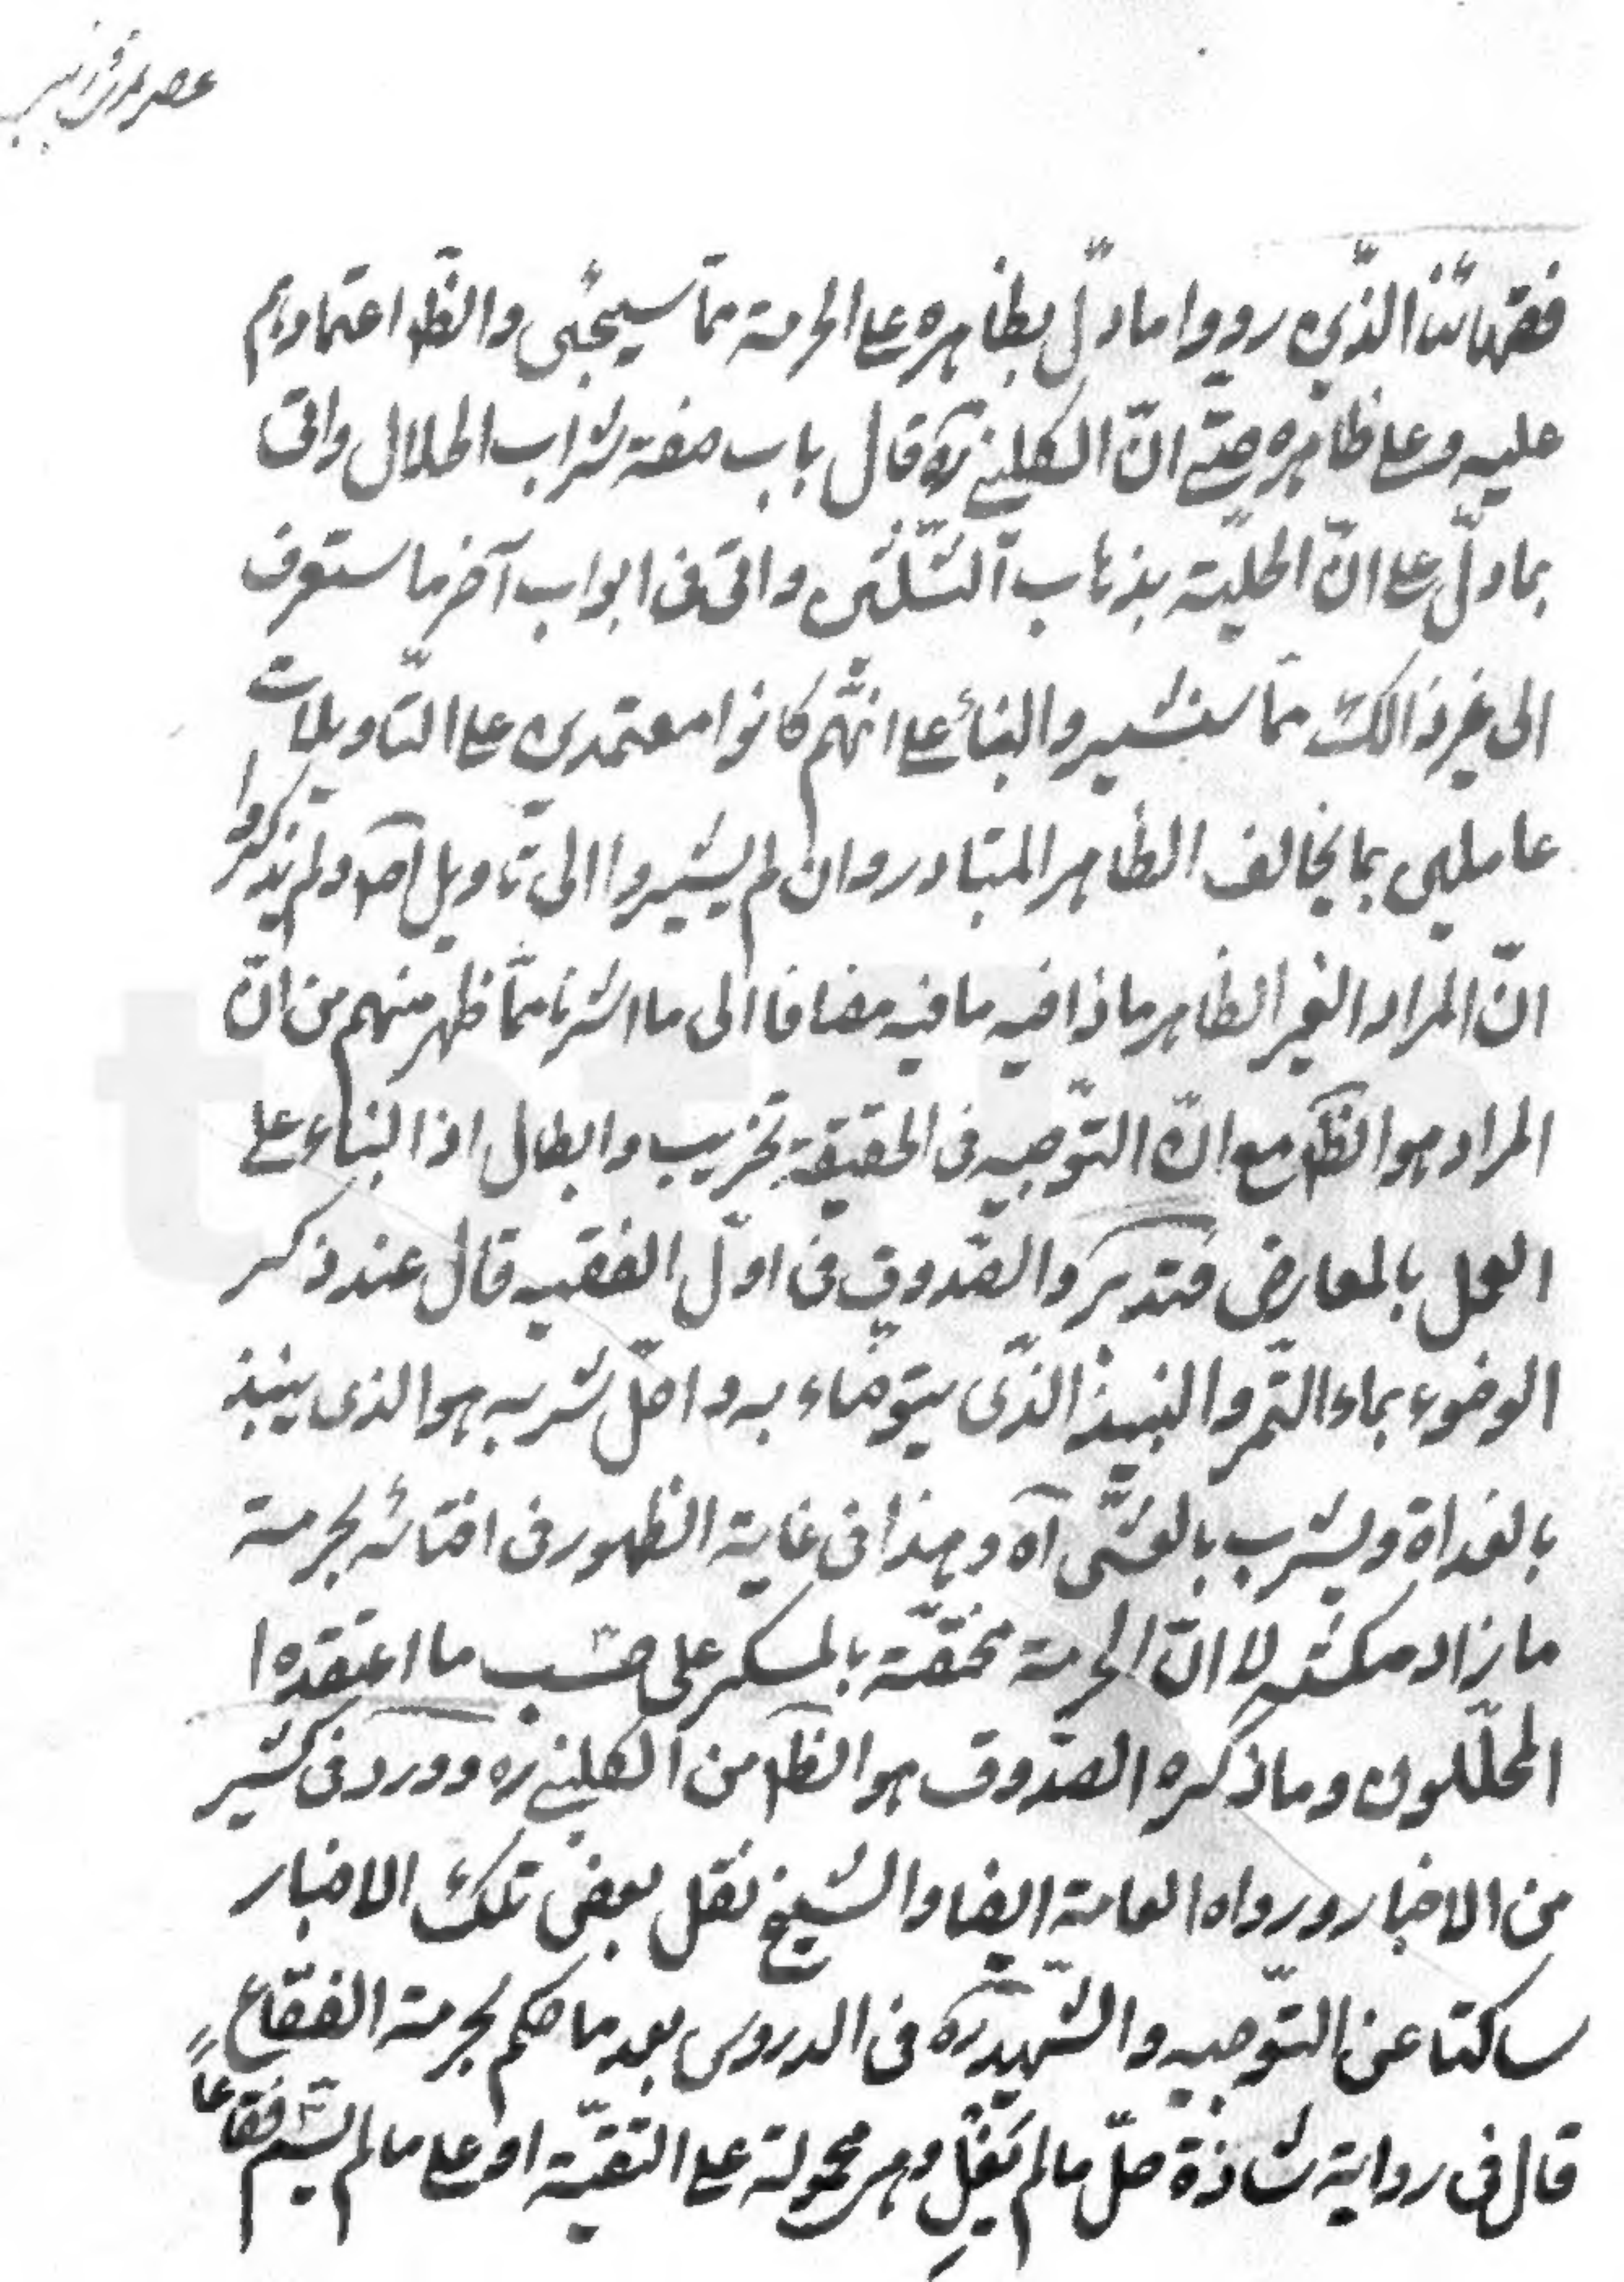 فقهائنا الذّين رووا ما دلّ بظاهره على الحرمة ممّا سيجئى والظ اعتمادهم
عليه وعلى ظاهره حتّى انّ الكلينى ره قال باب صفة شراب الحلال واتى
بما دلّ على انّ الحليّة بذهاب الثّلثين واتى فى ابواب آخر ما ستعرف
الى غير ذالك ممّا سنشير والبناء على انّهم كانوا معتمدين على التّاويلات
عاملين بما يخالف الظاهر المتبادر وان لم يشيروا الى تاويل اصلا ولم يذكروا
انّ المراد الغير الظاهر ماذا فيه ما فيه مضافا الى ما اشرنا ممّا ظهر منهم من انّ
المراد هو الظ مع انّ التّوجيه فى الحقيقة تخريب وابطال اذ البناء على
العمل بالمعارض فتدبّر والصّدوق فى اوّل الفقيه قال عند ذكر
الوضوء بماء التّمر والنبيذ الذّى يتوضاء به واحلّ شربه هو الذى ينبذ
بالغداة ويشرب بالعشّى آه وهذا فى غاية الظهور فى افتائه بحرمة
ما زاد مكثه لا انّ الحرمة مختصّة بالمسكر على حسب ما اعتقده ا
المحلّلون وما ذكره الصدّوق هو الظ من الكلينى ره وورد فى كثير
من الاخبار ورواه العامة ايضا والشيخ نقل بعض تلك الاخبار
ساكتا عن التّوجيه والشّهيد ره فى الدروس بعد ما حكم بحرمة الفقّاع
قال فى رواية شاذة حلّ ما لم يغلِ وهى محمولة على التقيّة او على ما لم يسّم فقاعاً